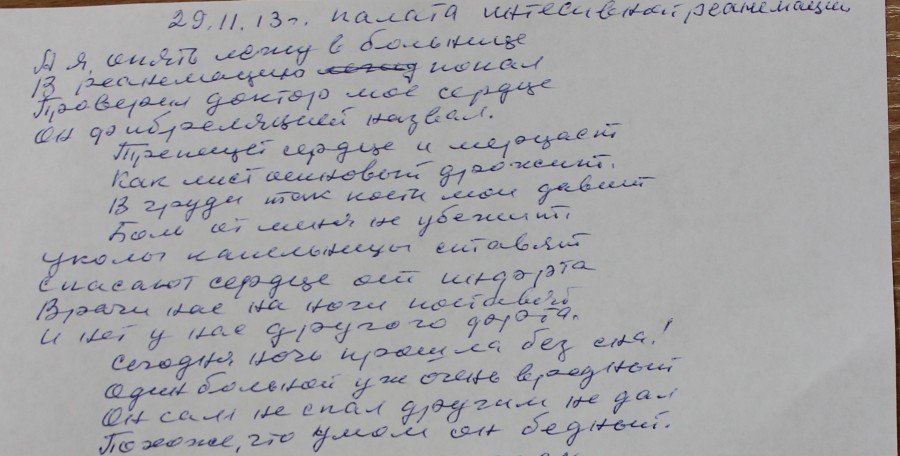 29.11.13г. палата интесивной реанемации
А я опять лежу в больнице
В реанемацию попал
Проверил доктор моё сердце
Он фибреляцией назвал.
Трепещет сердце и мерцает
Как лист осиновый дрожит.
В груди так кости мои давит
Боль от меня не убежит.
Уколы капельницы ставят
Спасают сердце от инфрта
Врачи нас на ноги поставят
И нет у нас другого фарта.
Сегодня ночь прошла без сна!
Один больной уж очень вредный
Он сам не спал другим не дал
Похоже, что умом он бедный.